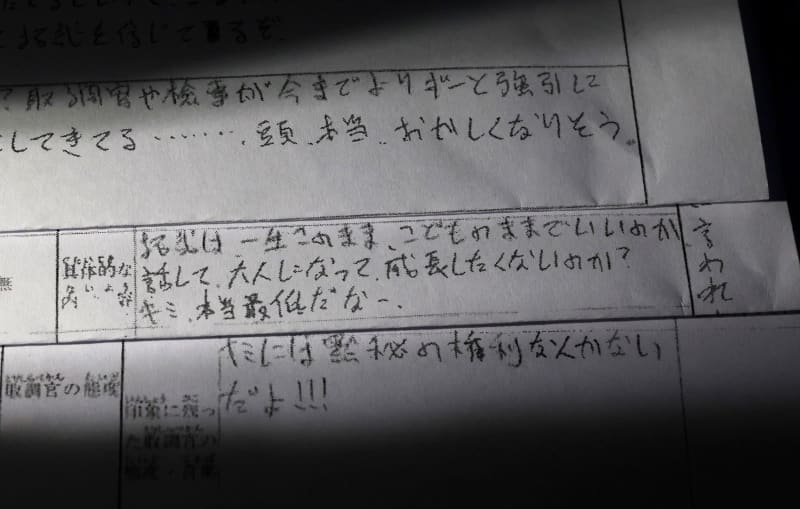 を信じてるぞ.
取調官や検事が今までよりずーと強引に
してきてる………. 頭、本当、おかしくなりそう。
は一生このまま、こどものままでいいのか
話して、大人になって、成長したくないのか?
キミ、本当最低だなー、
言われ
無
具体的な
内容
ないよう
キミには黙秘の権利なんかない
だよ!!!
取調官の態度
とりしらべかん たいど
印象に残っ
た取調官の
態度・言葉